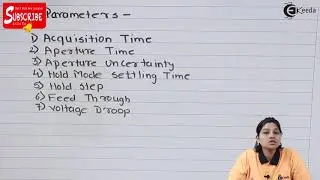 Parameters -
SUBSCRIBE
Ekeeda
1) Acquisition Time
2) Aperture Time
3) Aperture Uncertainty
4) Hold Mode Settling Time
5) Hold step
6) Feed Through
7) Voltage Droop